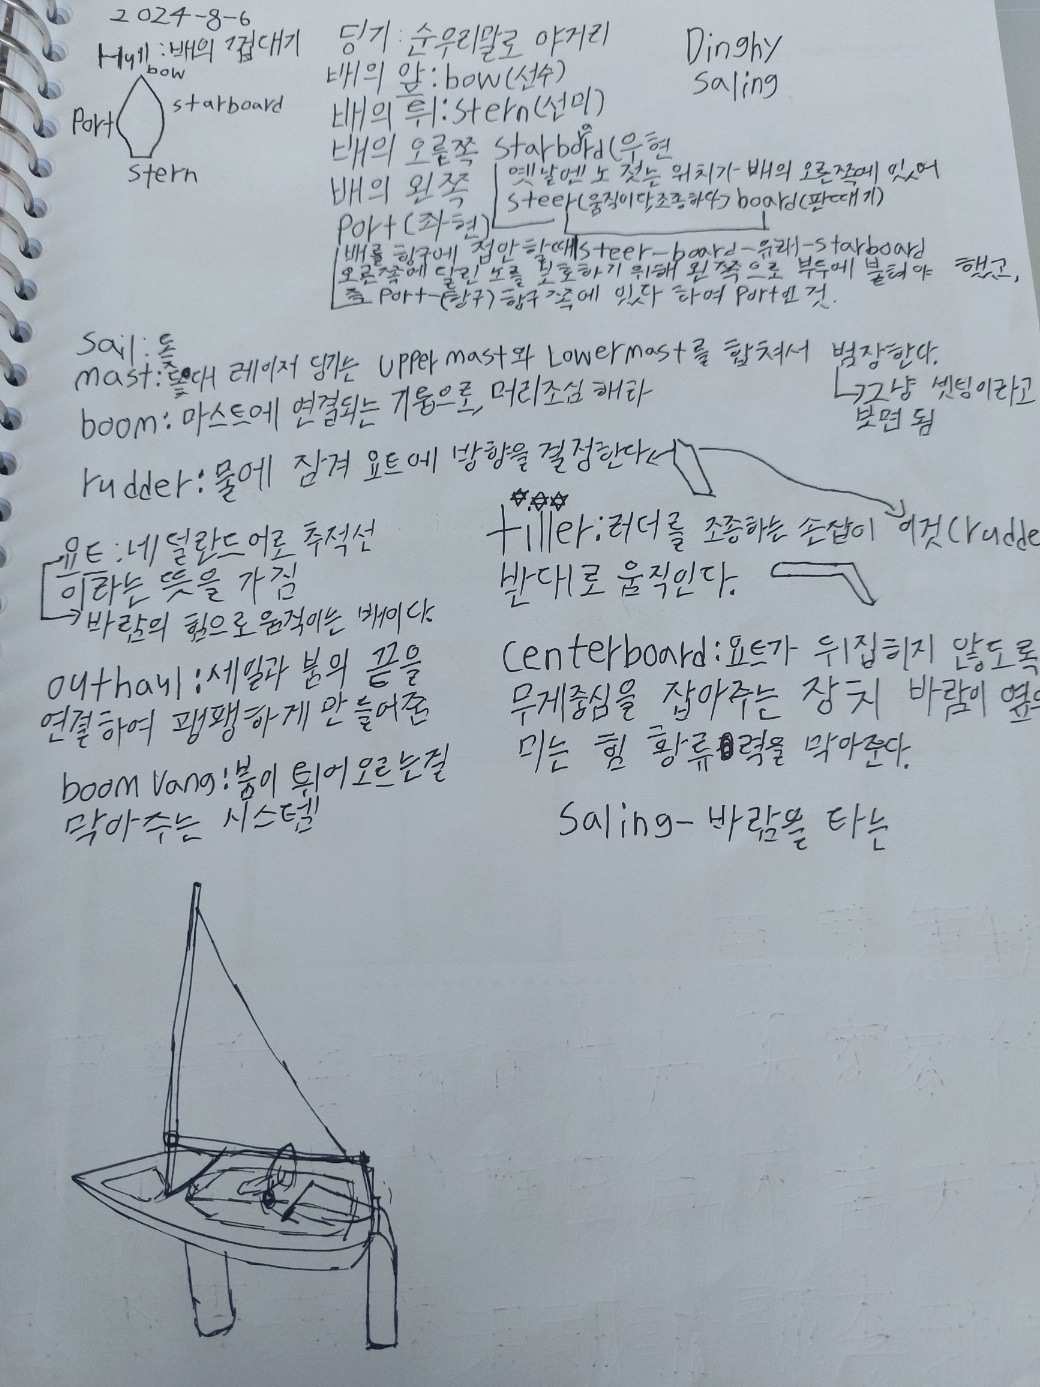 2024-8-6
Hull:배의 겁대기
bow
Port
starboard
stern
딩기:순우리말로 야거리
배의 앞:bow(선수)
배의 뒤:stern(선미)
배의 오른쪽 starboard(우현
옛날엔 노 젓는 위치가 배의 오른쪽에 있어
steer(움직이다,조종하다) board(판때기)
배의 왼쪽
Port(좌현)
배를 항구에 접안 할때 steer-board-유래-starboard
오른쪽에 달린 노를 보호하기 위해 왼쪽으로 부두에 붙혀야 했고,
즉 Port-(항구) 항구 쪽에 있다 하여 Port인 것.
Dinghy
saling
Sail:돛
mast:돛대 레이저 딩기는 Upper mast와 Lowermast를 합쳐서 범장한다.
그냥 셋팅이라고
보면 됨
boom:마스트에 연결되는 기둥으로, 머리조심 해라
rudder:물에 잠겨 요트에 방향을 결정한다
요트:네덜란드어로 추적선
이라는 뜻을 가짐
바람의 힘으로 움직이는 배이다.
tiller:러더를 조종하는 손잡이 이것(rudde
반대로 움직인다.
outhaul:세일과 붐의 끝을
연결하여 팽팽하게 만들어줌
boom vang:붐이 튀어오르는걸
막아주는 시스템
centerboard:요트가 뒤집히지 않도록
무게중심을 잡아주는 장치 바람이 옆으
미는 힘 황류력을 막아준다.
Saling-바람을 타는